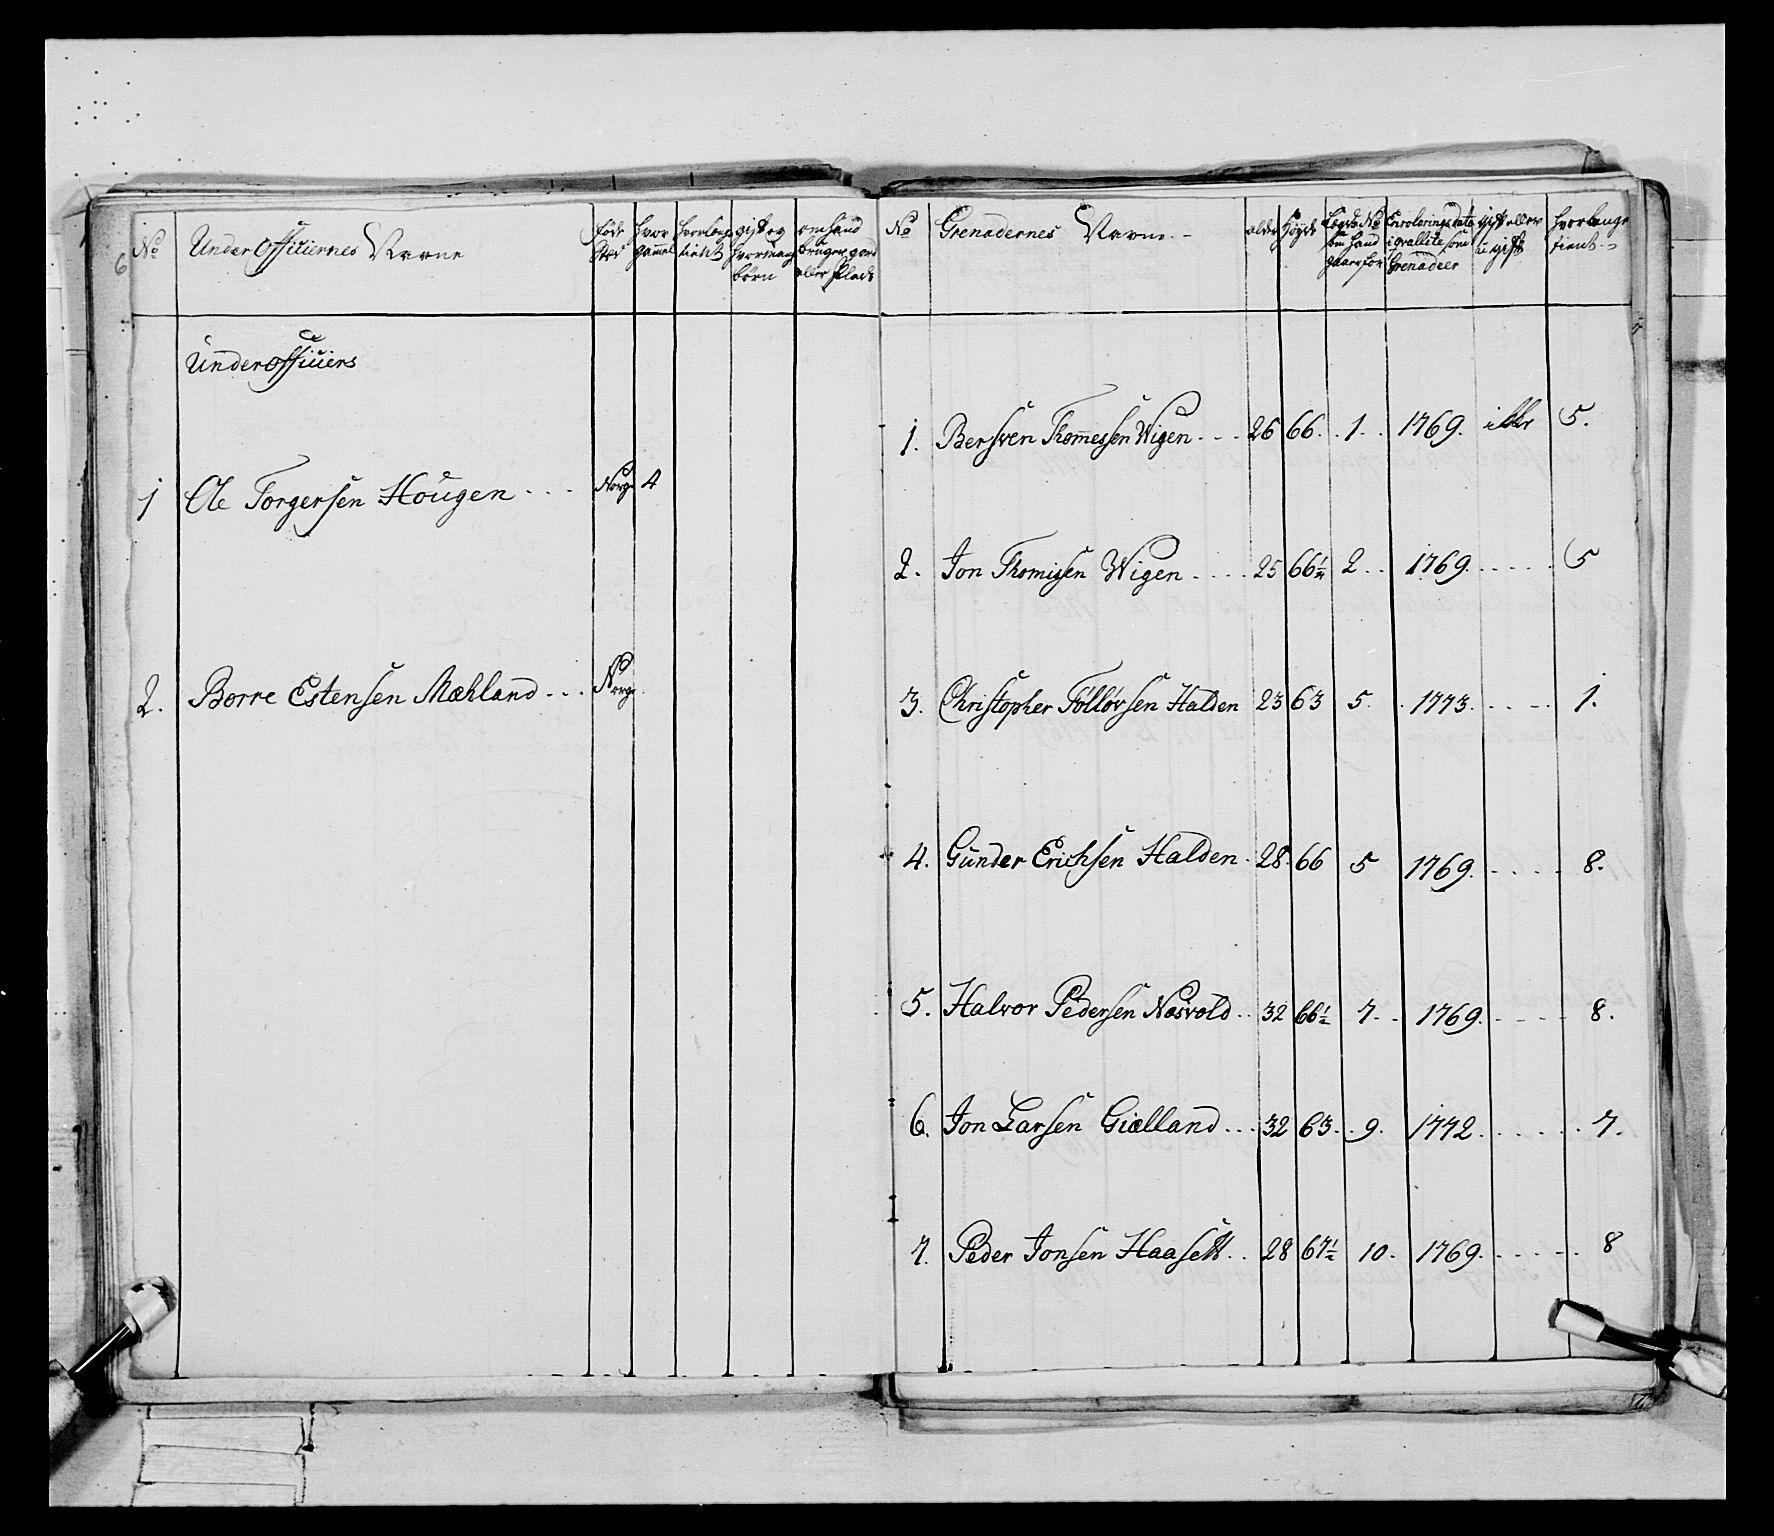 No Under Officiernes Navne føde Sted hvor gammel hvorlenge tient gift og hvormange børn om hand bruger gaard eller Plads
Underofficiers
1 Ole Torgersen Hougen - - - Norge 4
2. Borre Estensen Mæhland - - . Norge
No Grenadernes Navne. - alder høyde Legds No som hand gaar for Enrolerings data i qvallite som Grenadeer gift eller ugift hvorlenge tient. -
1. Bersven Thommessen Wigen - - - 26 66. . 1. . 1769. ikke 5.
2. Jon Thomissen Wigen - - - - 25 66½ 2 . . 1769. - - - - - 5
3. Christopher Følløvsen Halden 23 63 5. . 1773. - - - - 1.
4. Gunder Erichsen Halden. 28. 66 5 1769. - - - - 8.
5. Halvor Pedersen Næsvold . . 32 66½ 7. . 1769. - - - - 8.
6. Jon Larsen Giælland . . . 32 63. . 9. 1772. - - - - - 7.
7. Peder Jonsen Haasett . . 28 67½ 10. 1769. - - - - - 8